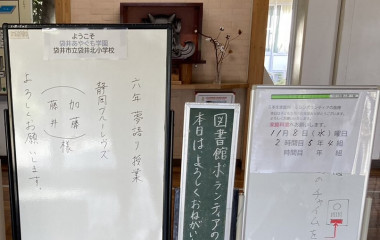 ようこそ
袋井あやぐも学園
袋井市立袋井北小学校
六年 夢語り授業
静岡ブルーレヴズ
加藤 様
藤井
よろしくお願いします。
図書館ボランティアの
本日は、よろしくおねがい
11月8日(水)曜日
2時間目 5年4組
時間目 年 組
チャイムを